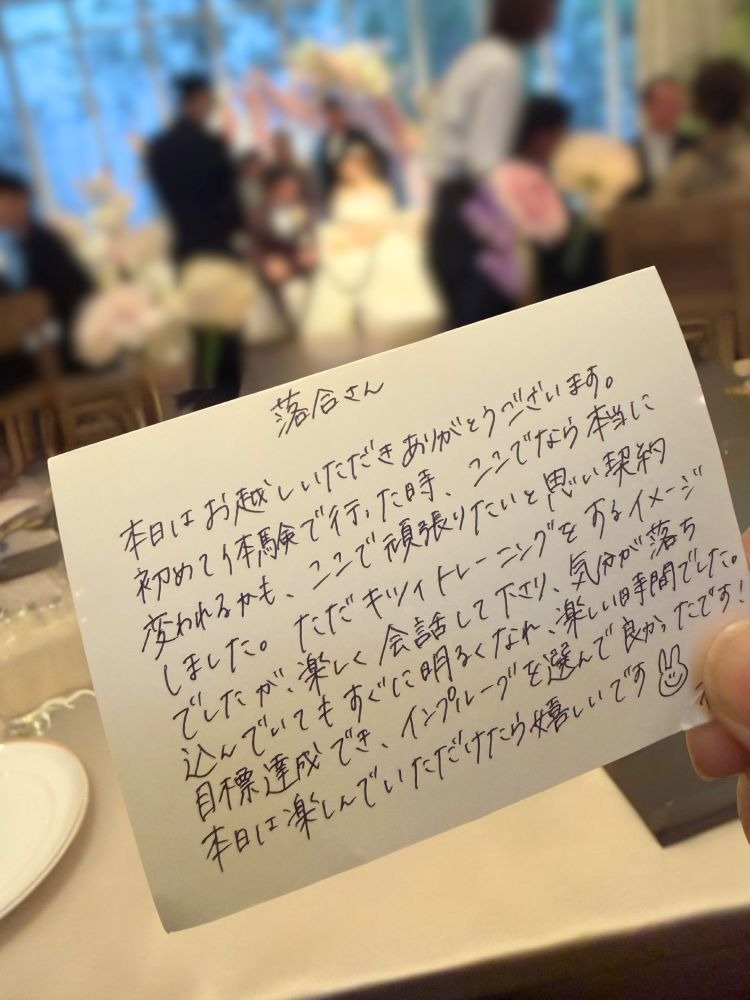 落合さん
本日はお越しいただきありがとうございます。
初めて体験で行った時、ここでなら本当に
変われるかも、ここで頑張りたいと思い契約
しました。ただキツイトレーニングをするイメージ
でしたが、楽しく会話して下さり、気分が落ち
込んでいてもすぐに明るくなれ、楽しい時間でした。
目標達成でき、インプルーブを選んで良かったです!
本日は楽しんでいただけたら嬉しいです